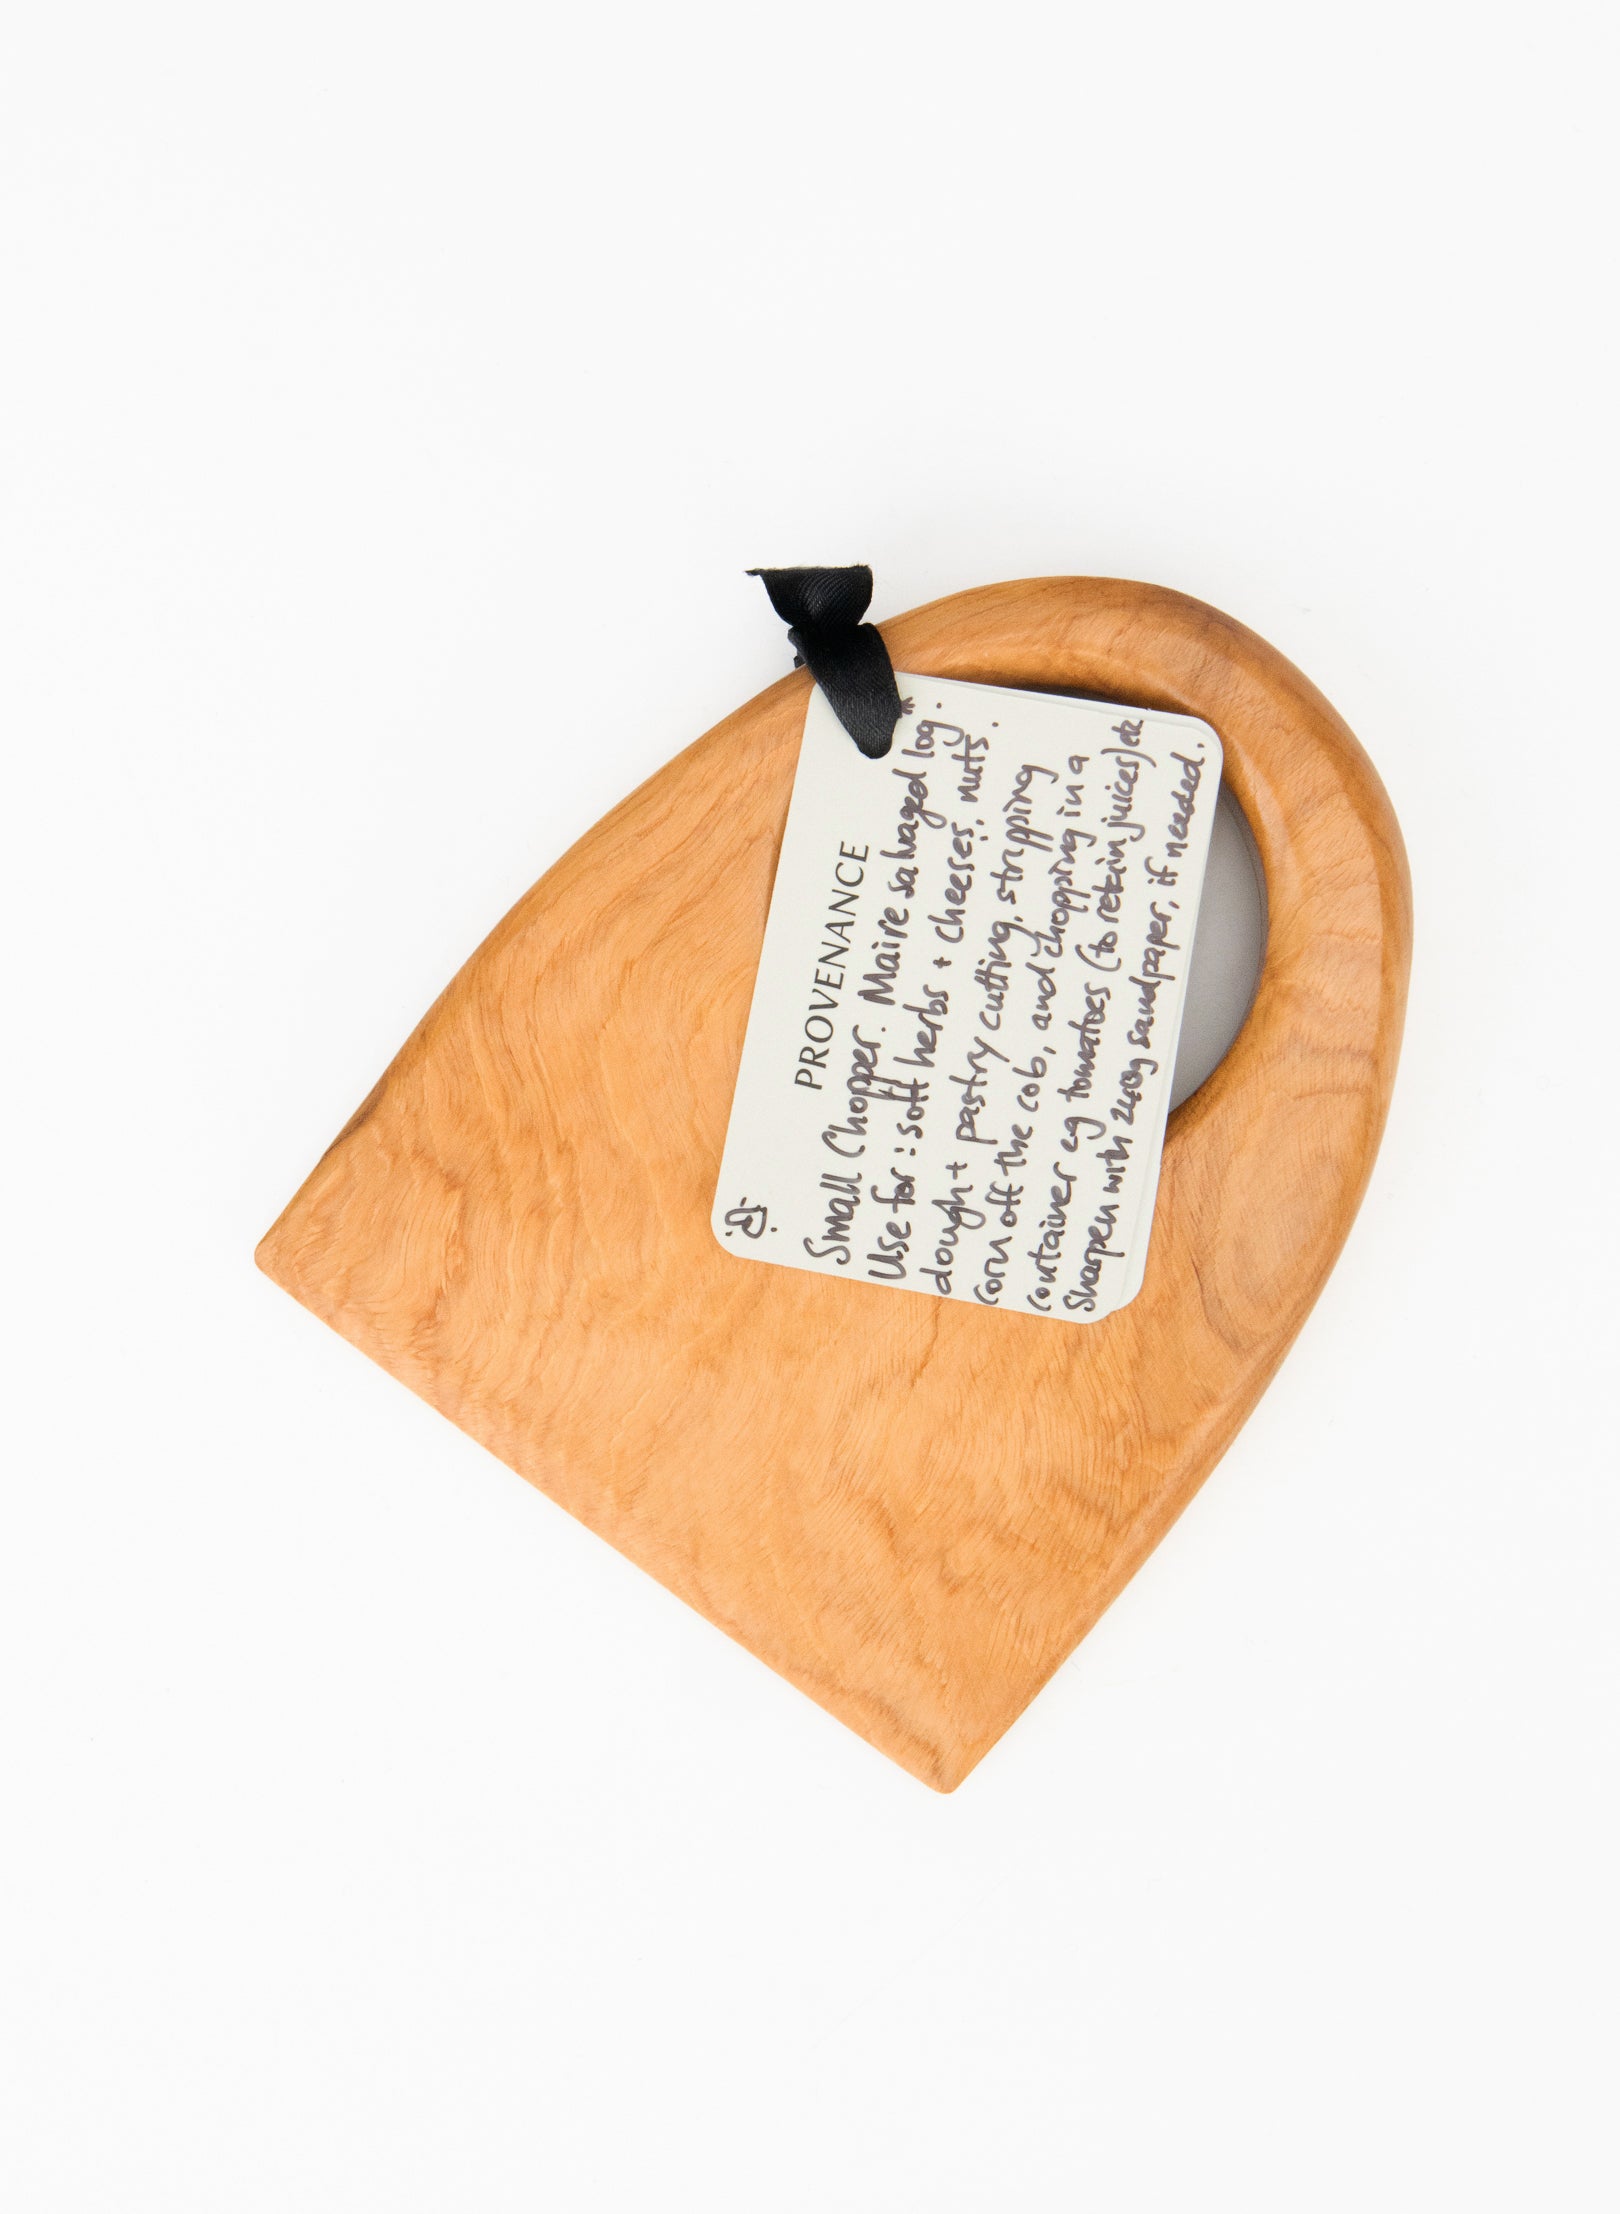 PROVENANCE
Small Chopper. Maire salvaged log.
Use for: soft herbs + cheeses, nuts.
dough + pastry cutting, stripping
corn off the cob, and chopping in a
container eg tomatoes (to retain juices) etc
Sharpen with 240g sandpaper, if needed.